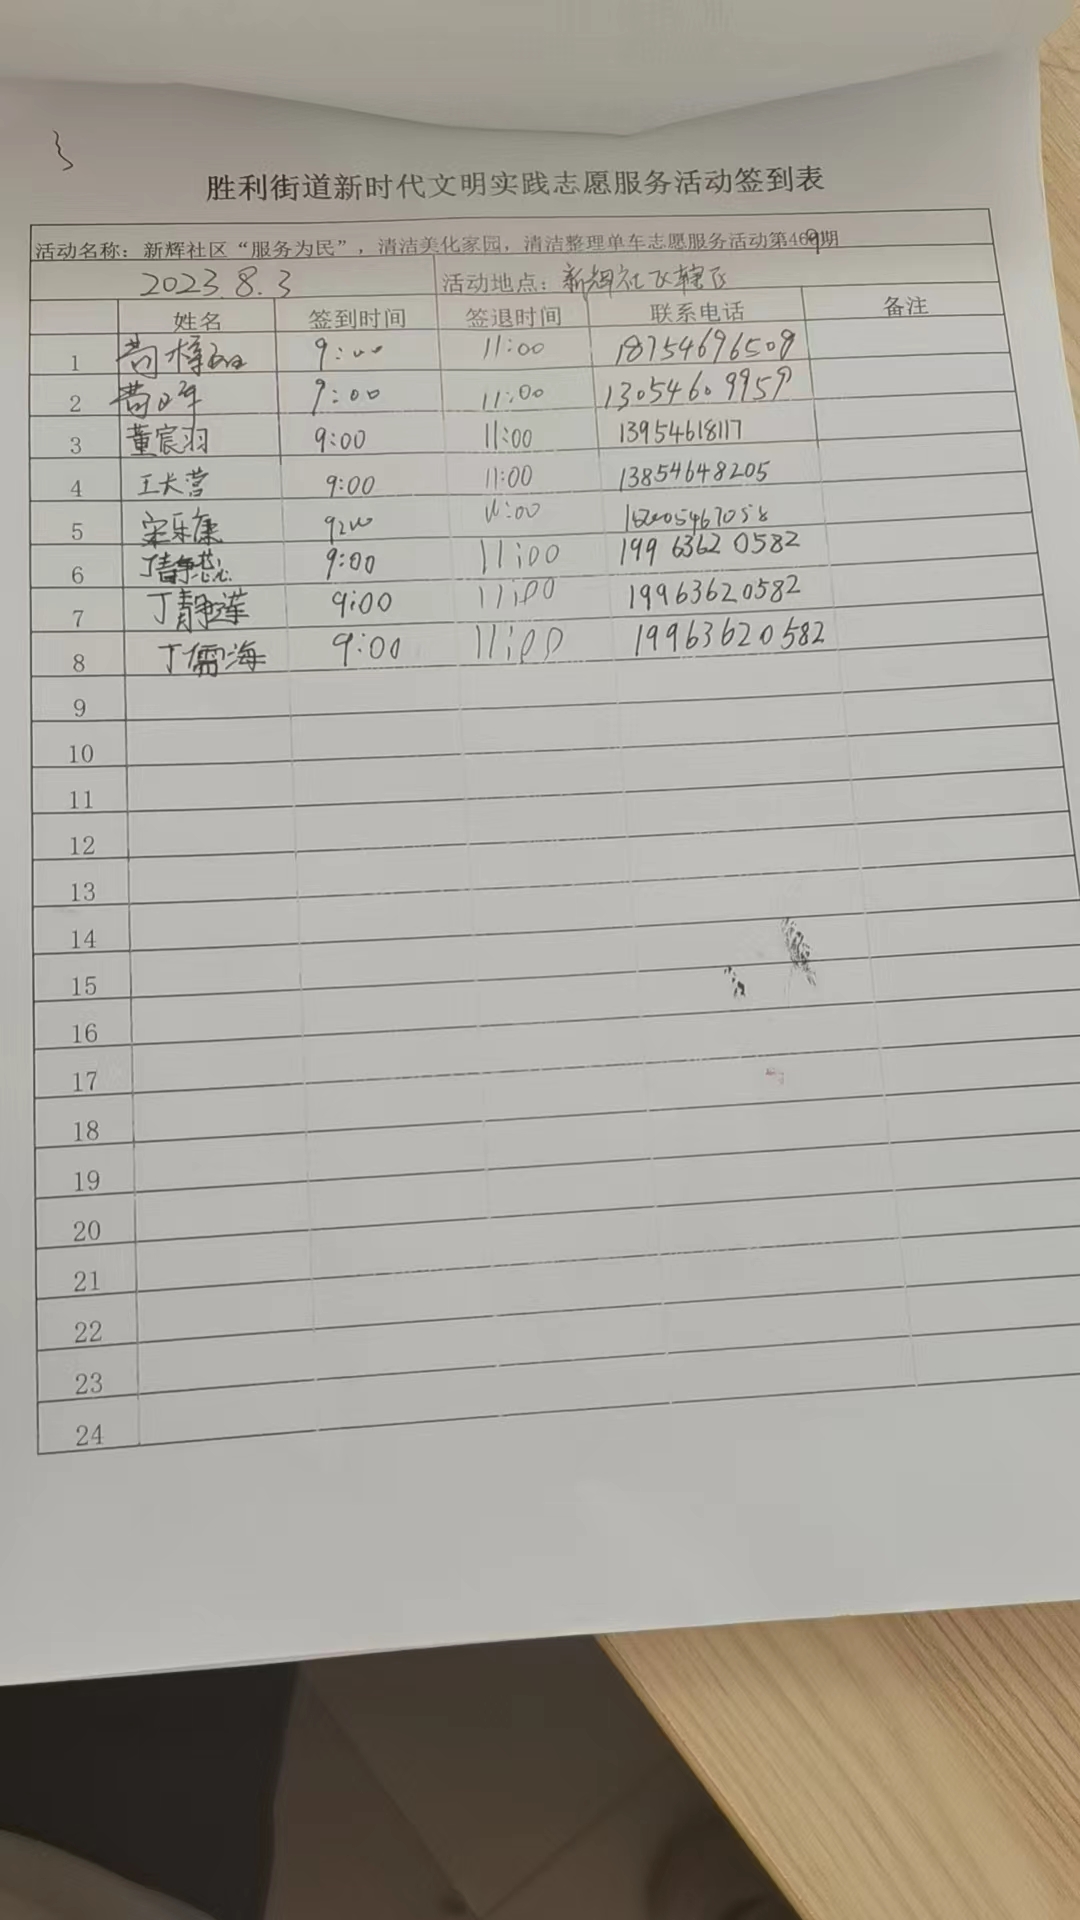 胜利街道新时代文明实践志愿服务活动签到表
活动名称：新辉社区“服务为民”，清洁美化家园，清洁整理单车志愿服务活动第469期
2023.8.3 活动地点：新辉社区辖区
姓名 签到时间 签退时间 联系电话 备注
1 9:00 11:00 18754696509
2 9:00 11:00 13054609959
3 董宸羽 9:00 11:00 13954618117
4 王大营 9:00 11:00 13854648205
5 11:00
6 丁静慧 9:00 11:00 19963620582
7 丁静莲 9:00 11:00 19963620582
8 丁儒海 9:00 11:00 19963620582
9
10
11
12
13
14
15
16
17
18
19
20
21
22
23
24